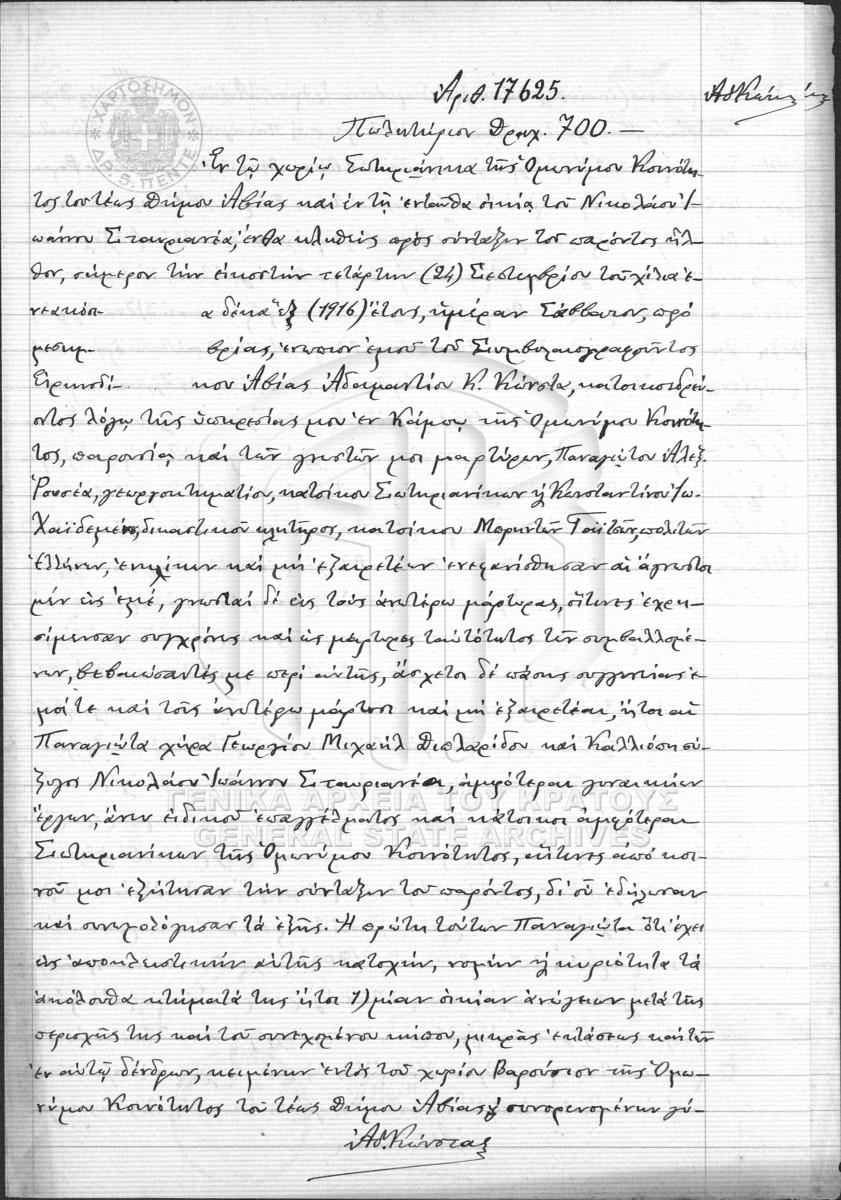 ΧΑΡΤΟΣΗΜΟΝ
ΔΡ. 5. ΠΕΝΤΕ
Ἀριθ. 17625.
Πωλητήριον Δραχ. 700.—
Ἐν τῷ χωρίῳ Σωτηριάνικα τῆς Ὁμωνύμου Κοινότη-
τος τοῦ τέως Δήμου Ἀβίας καὶ ἐν τῇ ἐνταῦθα οἰκίᾳ τοῦ Νικολάου Ἰ-
ωάννου Σταυριανέα, ἔνθα κληθεὶς πρὸς σύνταξιν τοῦ παρόντος ἦλ-
θον, σήμερον τὴν εἰκοστὴν τετάρτην (24) Σεπτεμβρίου τοῦ χίλια ἐ-
νεακόσι α δέκα ἓξ (1916) ἔτους, ἡμέραν Σάββατον, πρὸ
μεσημ- βρίας, ἐνώπιον ἐμοῦ τοῦ Συμβολαιογραφοῦντος
Εἰρηνοδί- κου Ἀβίας Ἀδαμαντίου Κ. Κώνστα, κατοικοεδρεύ-
οντος λόγῳ τῆς ὑπηρεσίας μου ἐν Κάμπῳ τῆς Ὁμωνύμου Κοινότη-
τος, παρουσίᾳ καὶ τῶν γνωστῶν μοι μαρτύρων, Παναγιώτου Ἀλεξ.
Ῥουσέα, γεωργοκτηματίου, κατοίκου Σωτηριανίκων ἢ Κωνσταντίνου Ἰω.
Χαϊδεμέν, δικαστικοῦ κλητῆρος, κατοίκου Μικρῶν Γαϊτσῶν, πολιτῶν
Ἑλλήνων, ἐνηλίκων καὶ μὴ ἐξαιρετέων ἐνεφανίσθησαν αἱ ἄγνωστοι
μὲν εἰς ἐμέ, γνωσταὶ δὲ εἰς τοὺς ἀνωτέρω μάρτυρας, οἵτινες ἐχρη-
σίμευσαν συγχρόνως καὶ ὡς μάρτυρες ταὐτότητος τῶν συμβαλλομέ-
νων, βεβαιώσαντές με περὶ αὐτῆς, ἄσχετοι δὲ πάσης συγγενείας ἐ-
μοί τε καὶ τοῖς ἀνωτέρω μάρτυσι καὶ μὴ ἐξαιρετέαι, ἤτοι αἱ
Παναγιώτα χήρα Γεωργίου Μιχαὴλ Διπλαρίδου καὶ Καλλιόπη σύ-
ζυγος Νικολάου Ἰωάννου Σταυριανέα, ἀμφότεραι γυναικείων
ἔργων, ἄνευ εἰδικοῦ ἐπαγγέλματος καὶ κάτοικοι ἀμφότεραι
Σωτηριανίκων τῆς Ὁμωνύμου Κοινότητος, αἵτινες ἀπὸ κοι-
νοῦ μοι ἐξήτησαν τὴν σύνταξιν τοῦ παρόντος, δι' οὗ ἐδήλωσαν
καὶ συνωμολόγησαν τὰ ἑξῆς. Ἡ πρώτη τούτων Παναγιώτα ὅτι ἔχει
εἰς ἀποκλειστικὴν αὐτῆς κατοχήν, νομὴν ἢ κυριότητα τὰ
ἀκόλουθα κτήματά της ἤτοι 1) μίαν οἰκίαν ἀνώγειων μετὰ τῆς
περιοχῆς της καὶ τοῦ συνεχομένου κήπου, μικρᾶς ἐκτάσεως καὶ τῶν
ἐν αὐτῷ δένδρων, κειμένων ἐντὸς τοῦ χωρίου Βαρούσιον τῆς Ὁμω-
νύμου Κοινότητος τοῦ τέως Δήμου Ἀβίας ἢ συνορευομένων γύ-
Ἀδ. Κώνστας
ΓΕΝΙΚΑ ΑΡΧΕΙΑ ΤΟΥ ΚΡΑΤΟΥΣ
GENERAL STATE ARCHIVES